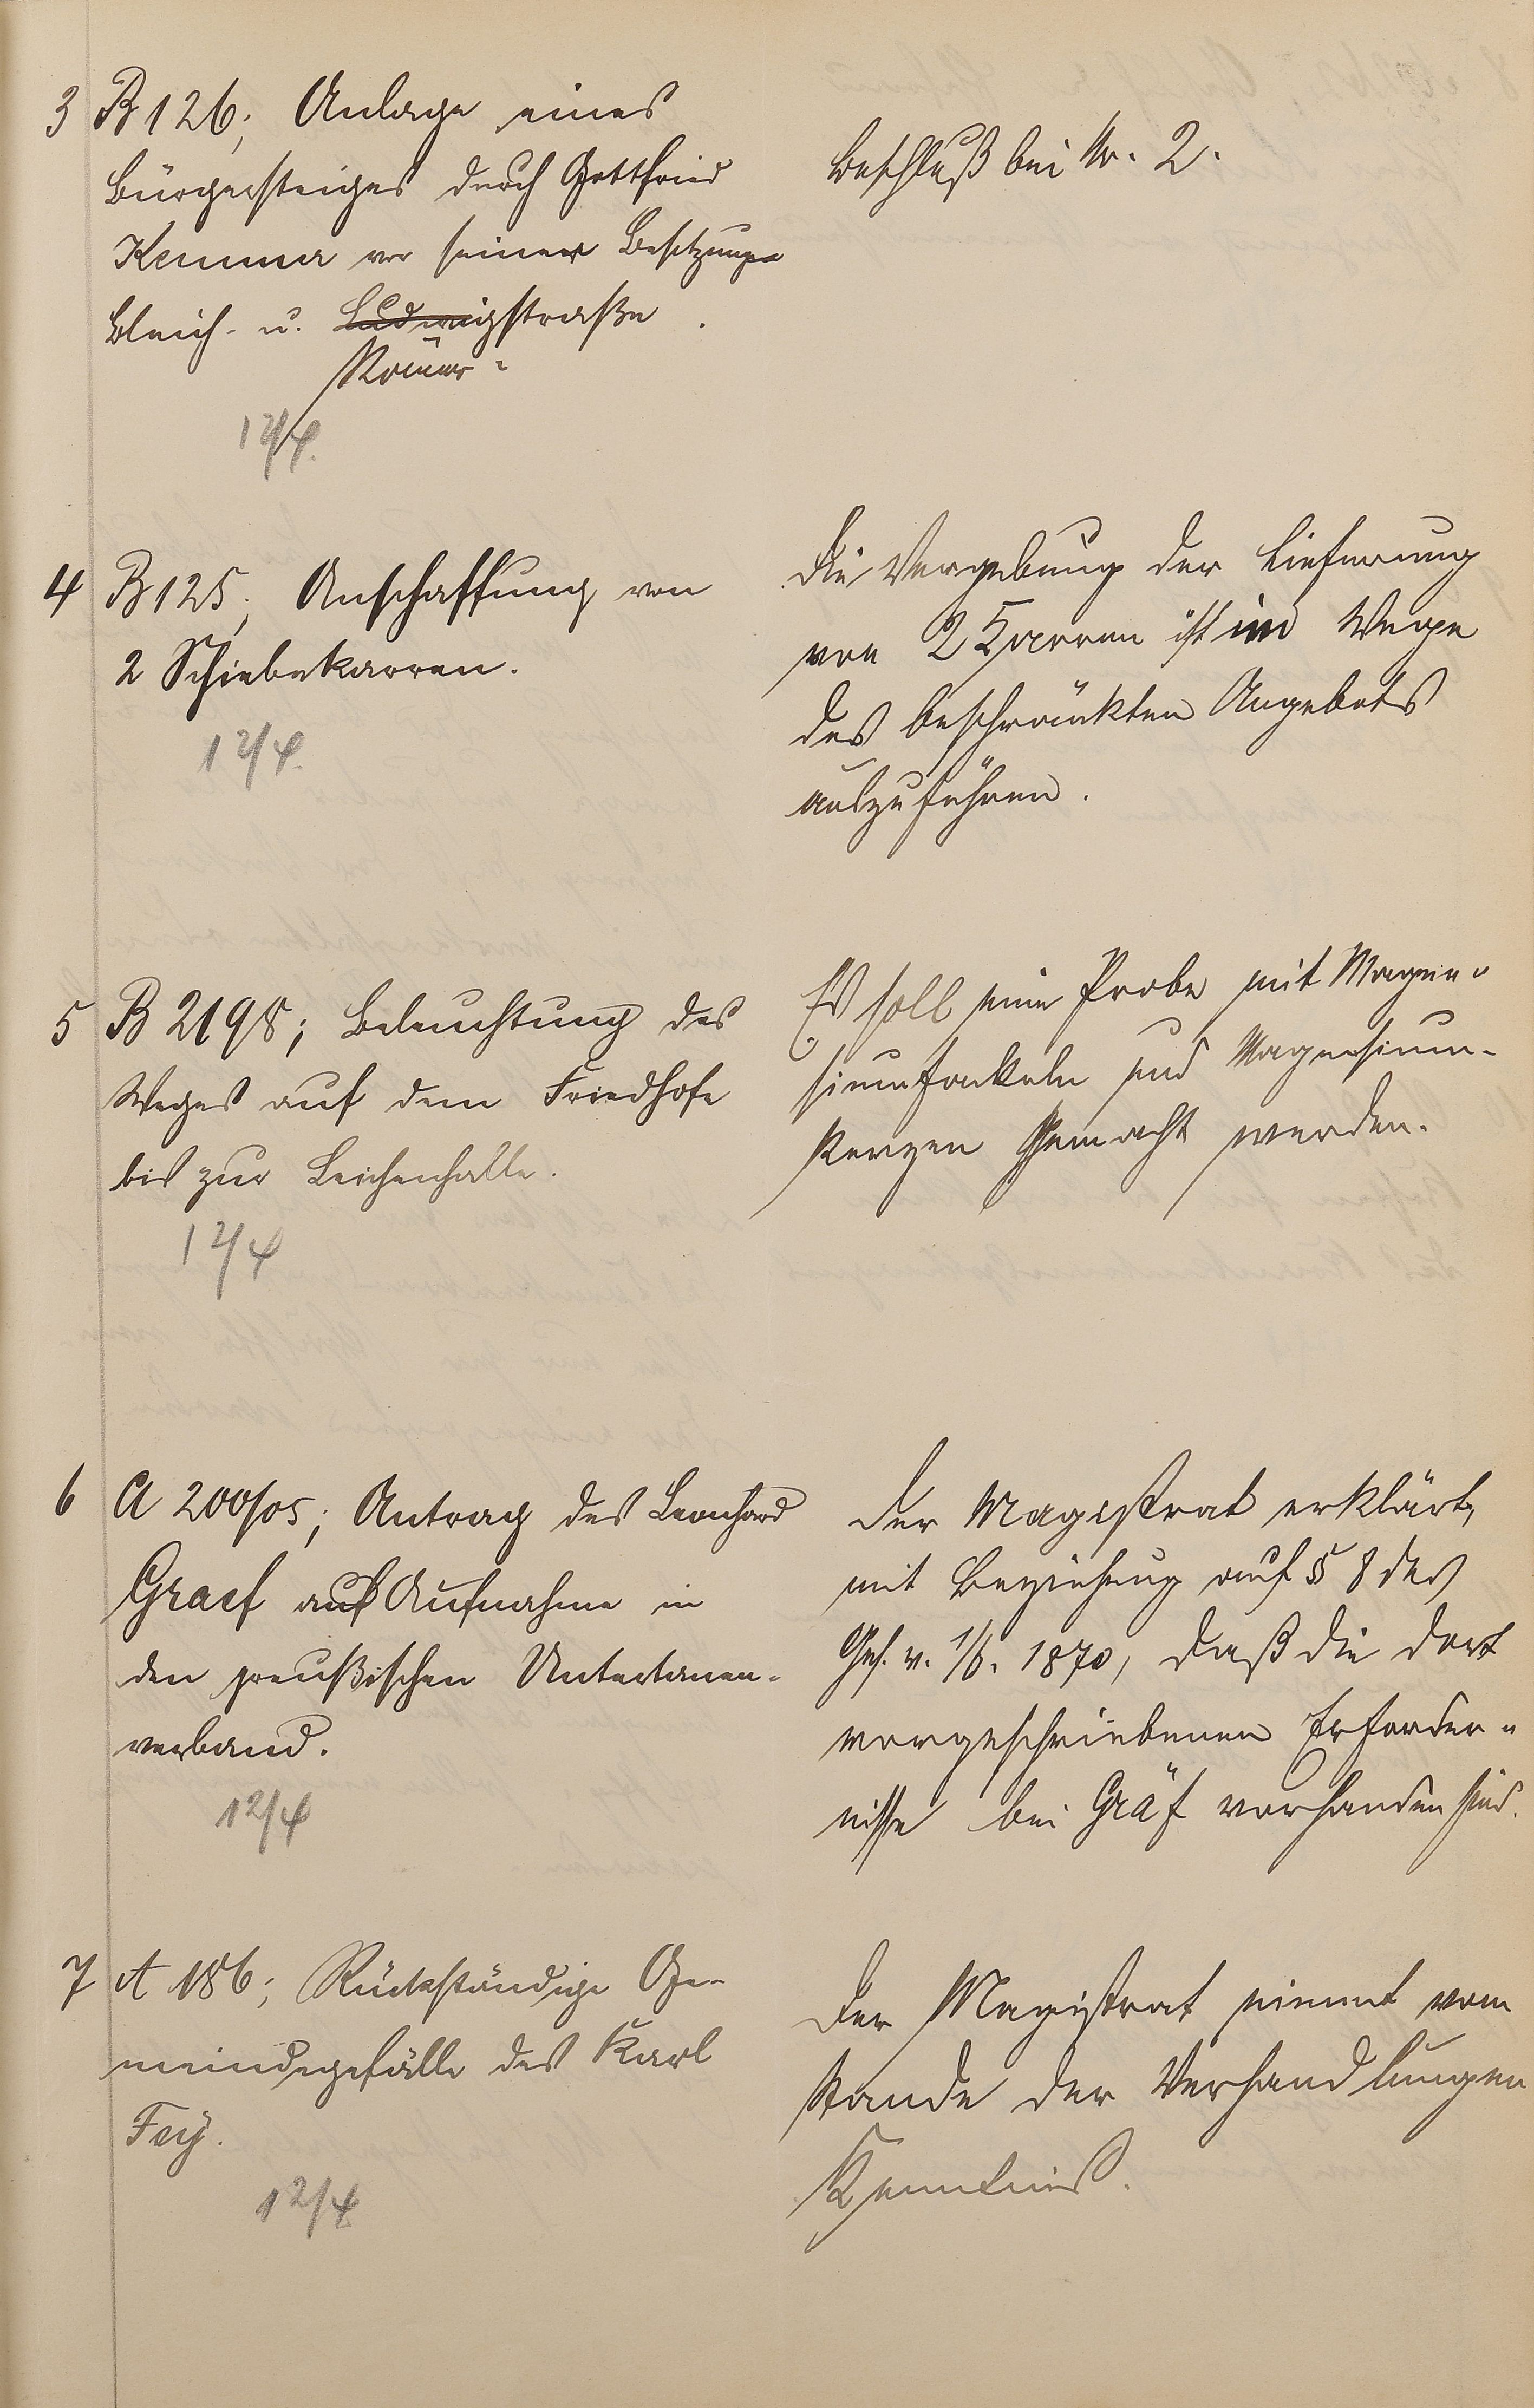 3 B 126; Anlage eines
Bürgersteiges durch Gottfried
Kemmer vor seiner Besitzung
Bleich- u. Ludwigstraße.
Römer-
12/4.
Beschluß bei Nr. 2.
4 B 125; Anschaffung von
2 Schiebekarren.
12/4.
Die Vergebung der Lieferung
von 2 Karren ist im Wege
des beschränkten Angebots
auszuführen.
5 B 2198; Beleuchtung des
Weges auf dem Friedhofe
bis zur Leichenhalle.
12/4
Es soll eine Probe mit Magne-
siumfackeln und Magnesium-
kerzen gemacht werden.
6 A 200/05; Antrag des Leonhard
Graef auf Aufnahme in
den preußischen Untertanen-
verband.
12/4
Der Magistrat erklärt,
mit Beziehung auf § 8 des
Ges. v. 1/6. 1870, daß die dort
vorgeschriebenen Erforder-
nisse bei Gräf vorhanden sind.
7 A 186; Rückständige Ge-
meindegefälle des Karl
Fey.
12/4
Der Magistrat nimmt vom
Stande der Verhandlungen
Kenntniß.